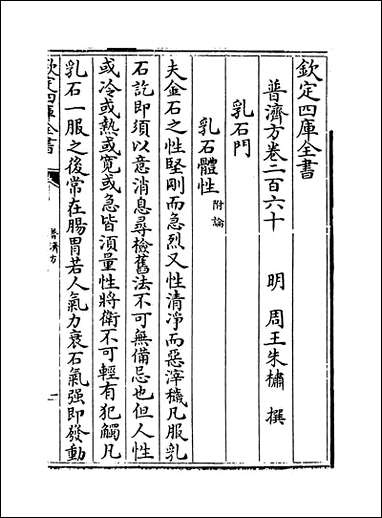 欽定四庫全書
普濟方卷二百六十
明　周王朱橚　撰
乳石門
乳石體性附論
夫金石之性堅剛而急烈又性清凈而惡滓穢凡服乳
石訖即須以意消息尋檢舊法不可無備忌也但人性
或冷或熱或寛或急皆須量性將衛不可輕有犯觸凡
乳石一服之後常在腸胃若人氣力衰石氣强即發動
欽定四庫全書
普濟方
一